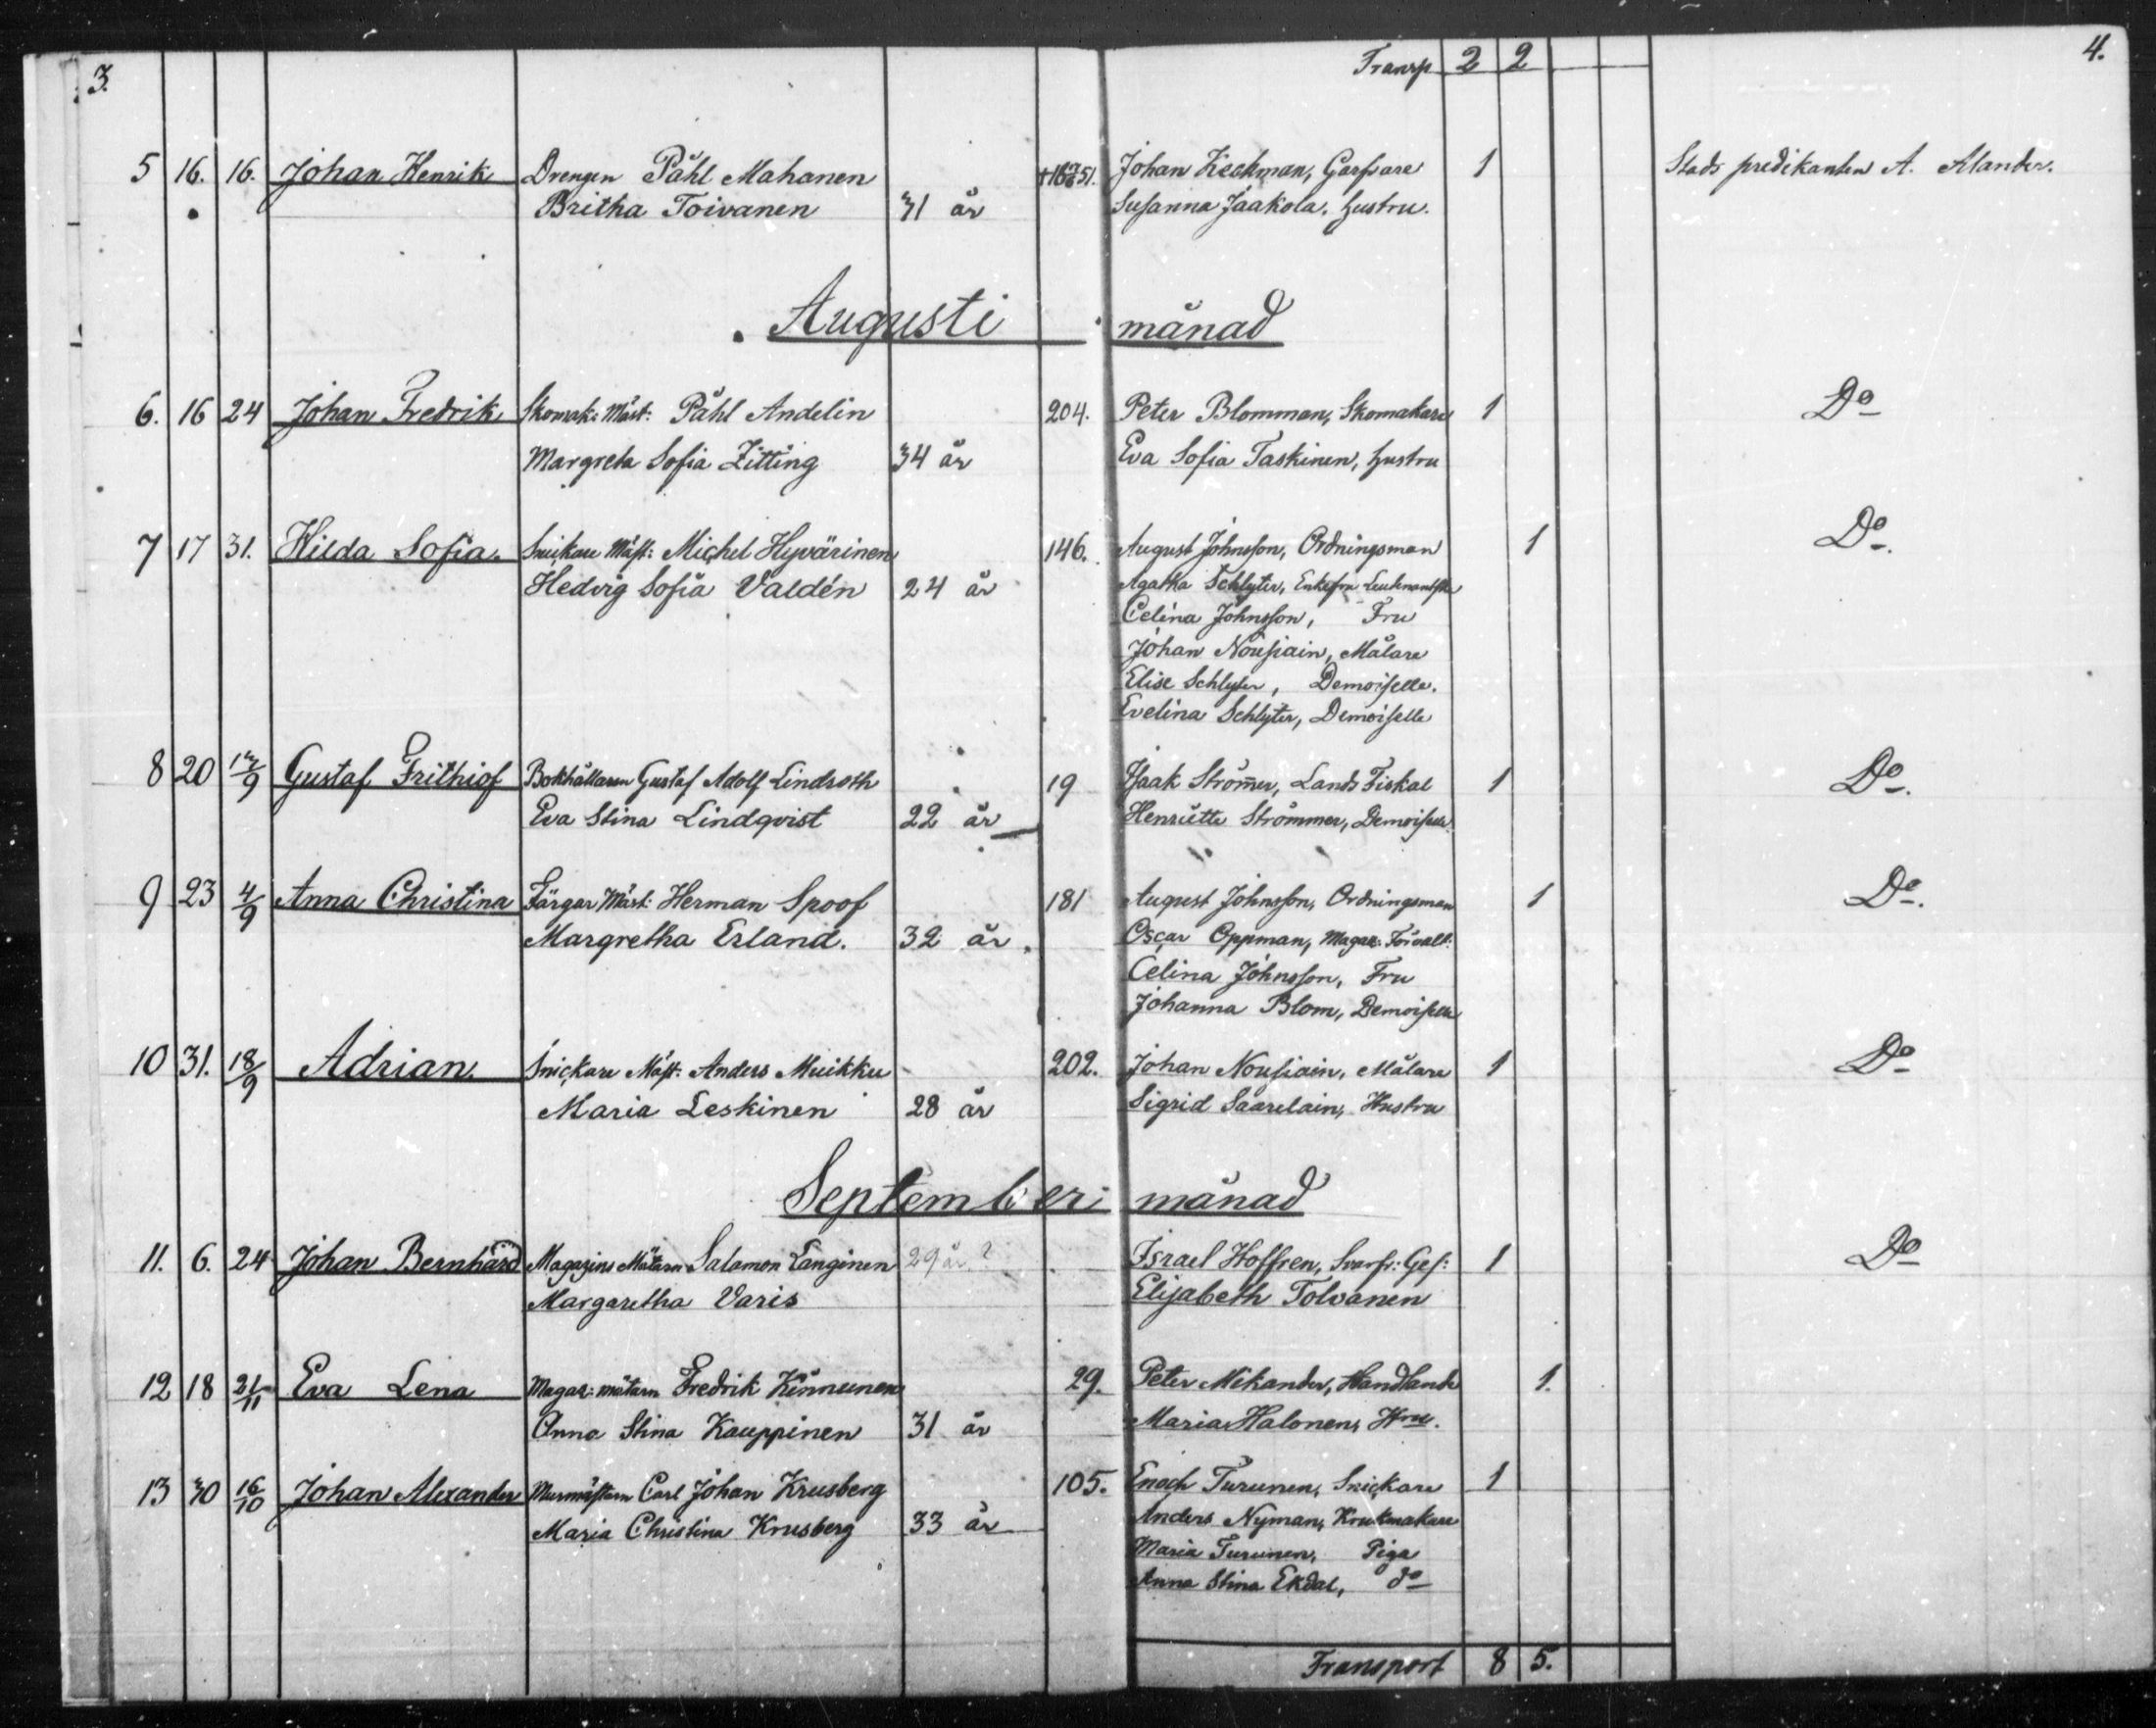 3.
Transp 2 2
4.
5 16. 16. Johan Henrik Drengen Påhl Mahanen Johan Keckman, Garfvare 1 Stads predikanten A. Alander.
Britha Toivanen 31 år Susanna Jaakola, hustru.
Augusti månad
6. 16 24 Johan Fredrik Skomak: Mäst: Påhl Andelin 204. Peter Blomman, Skomakare 1 Do
Margreta Sofia Zitting 34 år Eva Sofia Taskinen, hustru
7 17 31. Hilda Sofia. Snickare Mäst: Michel Hyvärinen 146. August Johnsson, Ordningsman 1 Do.
Hedvig Sofia Valdén 24 år Agatha Schlyter, Enkefru
Celina Johnsson, Fru
Johan Nousiain, Målare
Elise Schlyter, Demoiselle.
Evelina Schlyter, Demoiselle
8 20 12/9 Gustaf Frithiof Bokhållaren Gustaf Adolf Lindroth 19 Isaak Strömer, Lands Fiskal 1 Do.
Eva Stina Lindqvist 22 år Henriette Strömmer, Demoiselle.
9 23 4/9 Anna Christina Färgar Mäst: Herman Spoof 181 August Johnsson, Ordningsman 1 Do.
Margretha Erland. 32 år. Oscar Oppman, Magaz: Förvalt:
Celina Johnsson, Fru
Johanna Blom, Demoiselle
10 31. 18/9 Adrian. Snickare Mäst: Anders Muikku 202. Johan Nousiain, Målare 1 Do
Maria Leskinen 28 år Sigrid Saarelain, Hustru
September månad
11. 6. 24 Johan Bernhard Magazins Mätaren Salamon Tanginen 29 år ? Israel Hoffren, Svarfv: Ges: 1 Do
Margaretha Varis Elisabeth Tolvanen
12 18 21/11 Eva Lena Magaz: mätaren Fredrik Kinnunen 29. Peter Mikander, Handlande 1.
Anna Stina Kauppinen 31 år Maria Halonen, Hru.
13 30 16/10 Johan Alexander Murmästaren Carl Johan Krusberg 105. Enoch Turunen, Snickare 1
Maria Christina Krusberg 33 år Anders Nyman, Krukmakare
Maria Turunen, Piga
Anna Stina Ekdal, do
Transport 8 5.